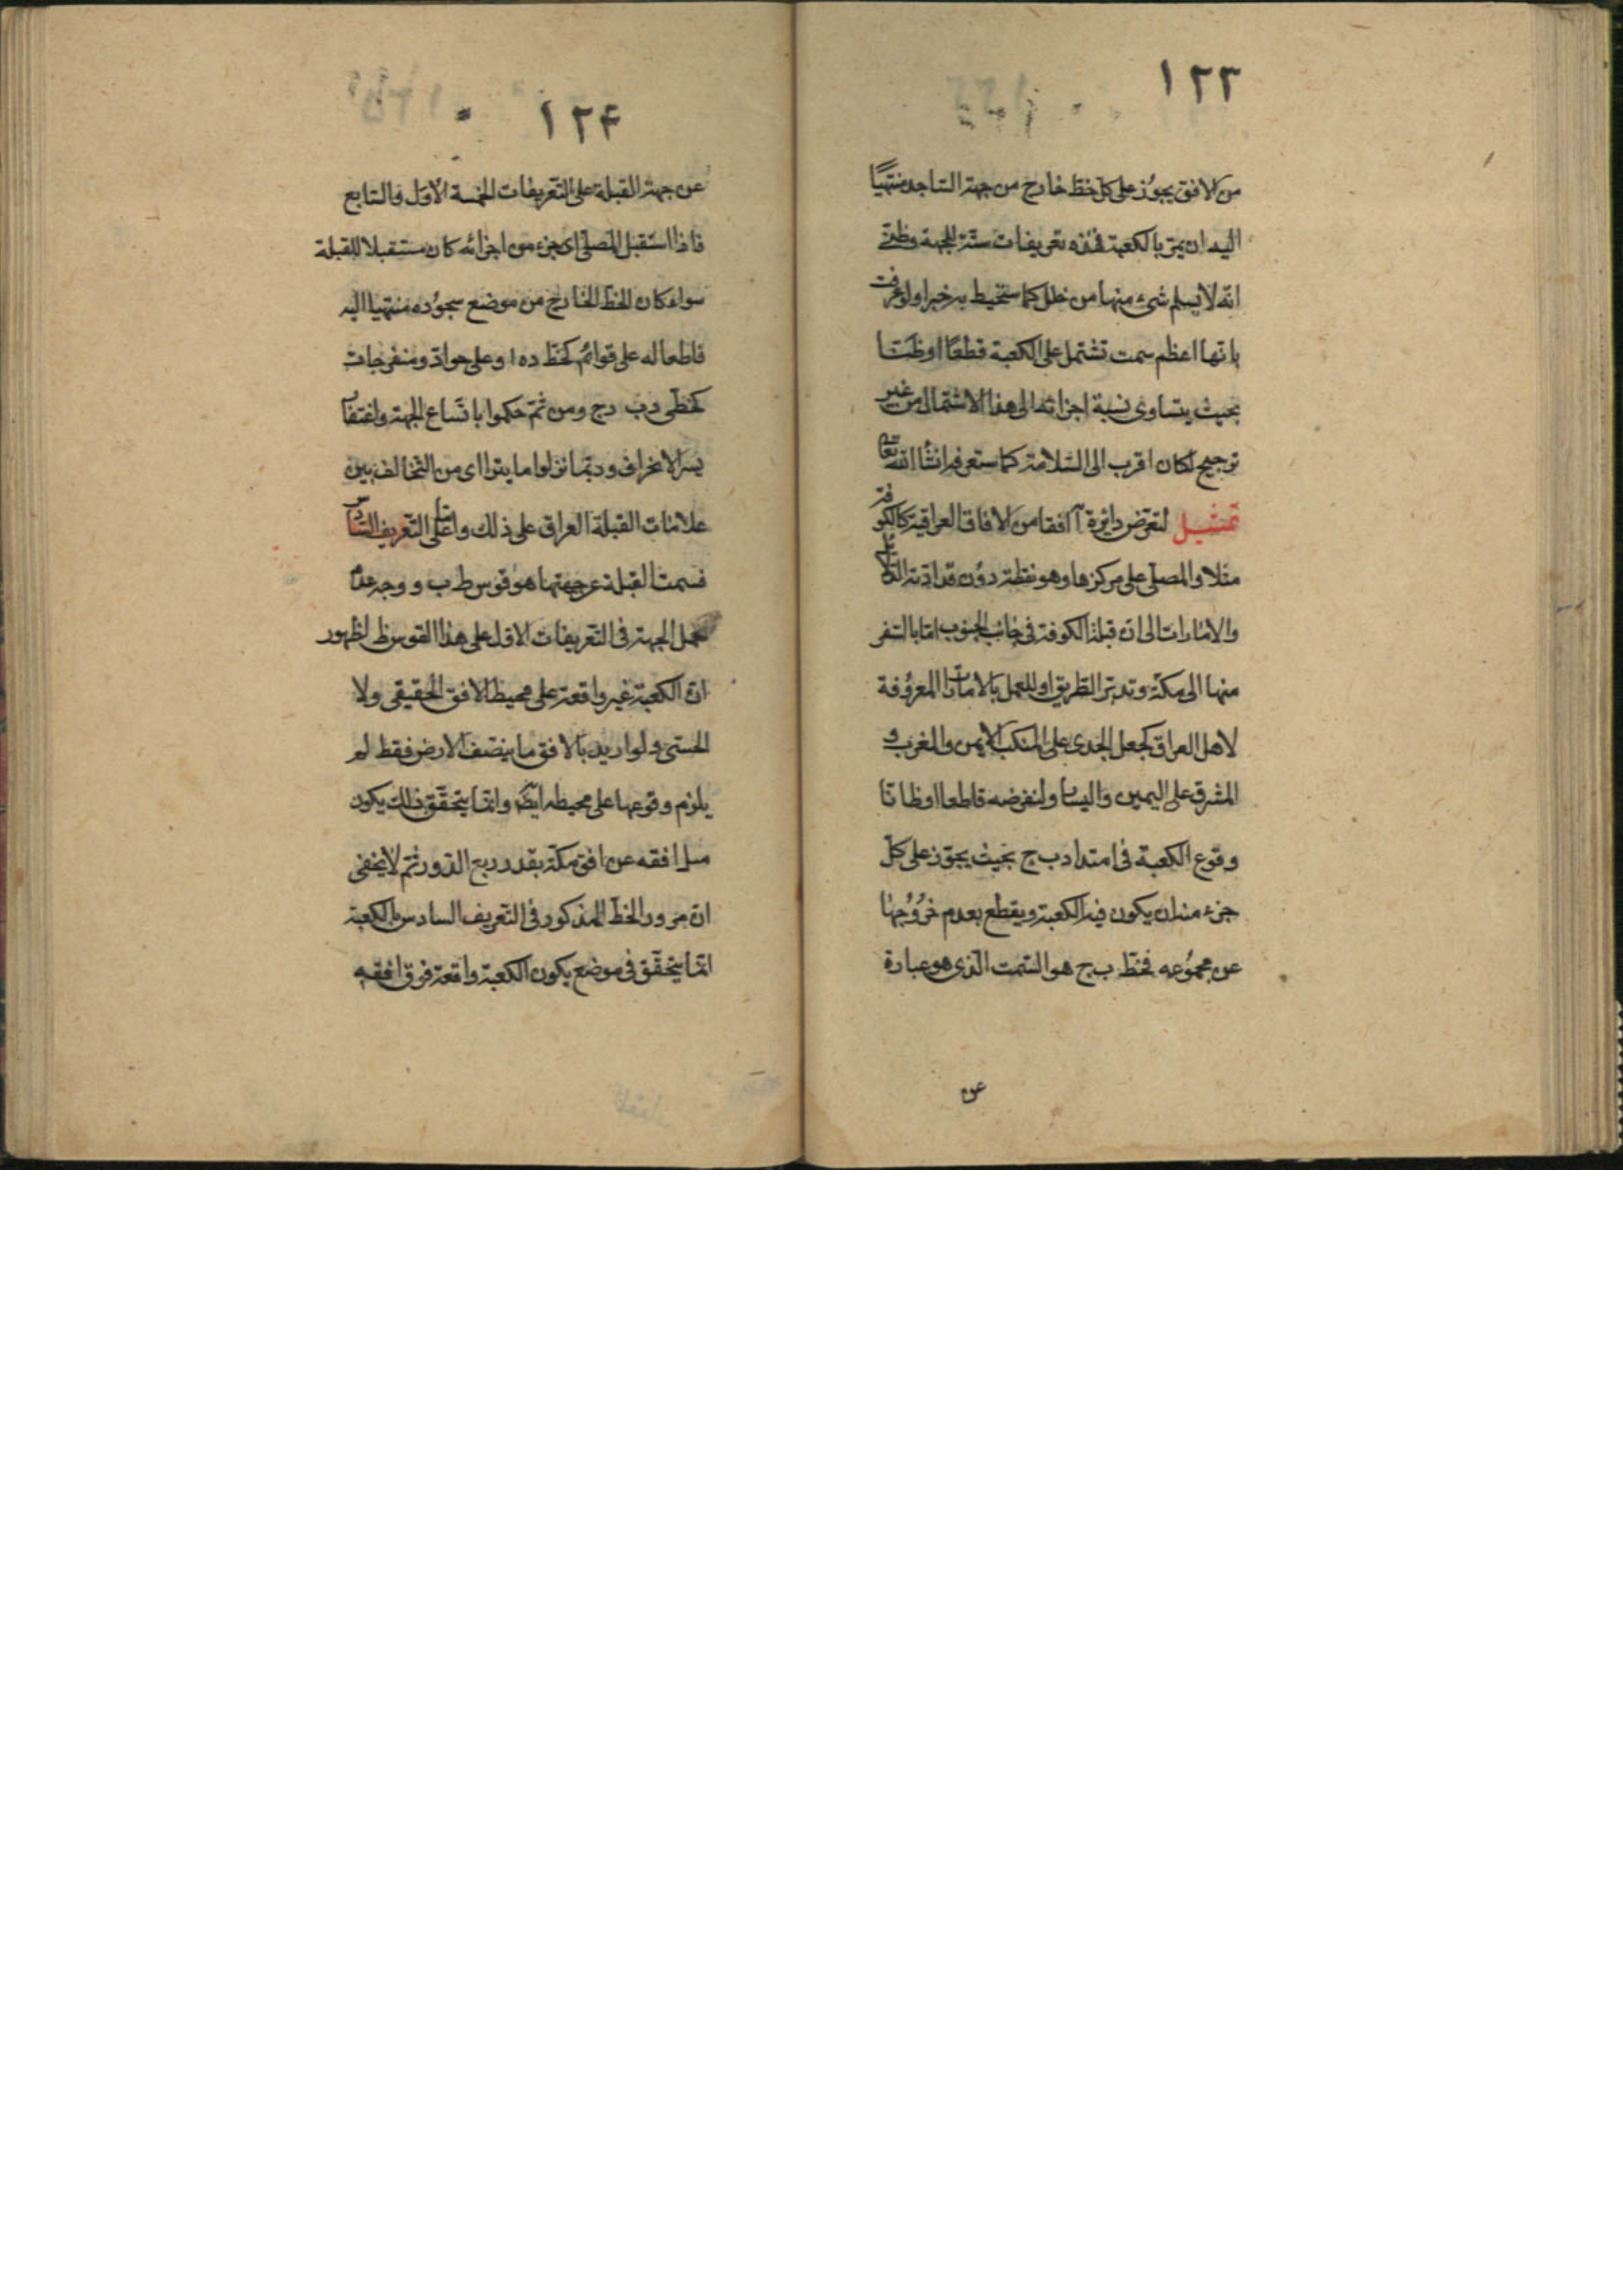 ١٢٣
من الافق يجوز على كل خط خارج من جهة الساجد منتهيًا
اليه ان يمر بالكعبة فهذه تعريفات ستة للجهة وظني
انه لا يسلم شيء منها من خلل كما ستحيط به خبرا ولو عرفت
بانها اعظم سمت تشتمل على الكعبة قطعًا او ظنا
بحيث يتساوى نسبة اجزائه الى هذا الاشتمال من غير
ترجيح لكان اقرب الى السلامة كما ستعرفه انشأ الله تعا
تمثيل لنفرض دائرة آ افقا من الافاق العراقية كالكوفة
مثلا والمصلى على مركزها وهو نقطة د وُن قد ادته الدلائل
والامارات الى ان قبلة الكوفة في جانب الجنوب اما بالسفر
منها الى مكة وتدبر الطريق او للعمل بالامارات المعروفة
لاهل العراق كجعل الجدى على المنكب الايمن والمغرب و
المشرق على اليمين واليسار ولنفرضه قاطعا او ظانا
وقوع الكعبة في امتداد ب ج بحيث يجوّز على كل
جزء منه ان يكون فيه الكعبة ويقطع بعدم خروجها
عن مجموعه فخط ب ج هو السمت الذى هو عبارة
عن
١٢۴
عن جهة القبلة على التعريفات الخمسة الاول والسابع
فاذا استقبل المصلى اى جزء من اجزائه كان مستقبلا للقبلة
سواء كان الخط الخارج من موضع سجوده منتهيا اليه
قاطعا له على قوائم كخط د ه ا و على حواد ومنفرجات
كخطى د ب د ج ومن ثم حكموا باتساع الجهة واغتفار
يسير الانحراف وربما نزلوا ما يترااى من التخالف بين
علامات القبلة العراق على ذلك واما على التعريف السادس
فسمت القبلة عن جهتها هو قوس ط ب و وجه عدم
حمل الجهة في التعريفات الاول على هذا القوس ظ لظهور
ان الكعبة غير واقعة على محيط الافق الحقيقى ولا
الحسى ولو اريد بالافق ما ينصف الارض فقط لم
يلزم وقوعها على محيطه ايضا وانما يتحقق ذلك يكون
ميل افقه عن افق مكة بقدر ربع الدور ثم لا يخفى
ان مرور الخط المذكور في التعريف السادس بالكعبة
انما يتحقق في موضع يكون الكعبة واقعة فوق افقه